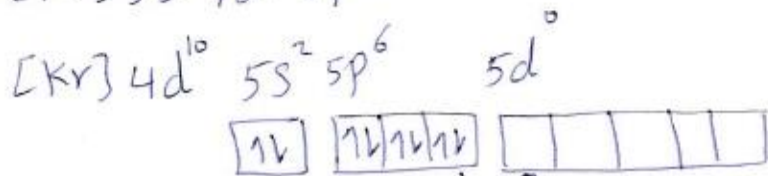 [Kr] 4d¹⁰ 5s² 5p⁶ 5d⁰
↑↓ ↑↓ ↑↓ ↑↓